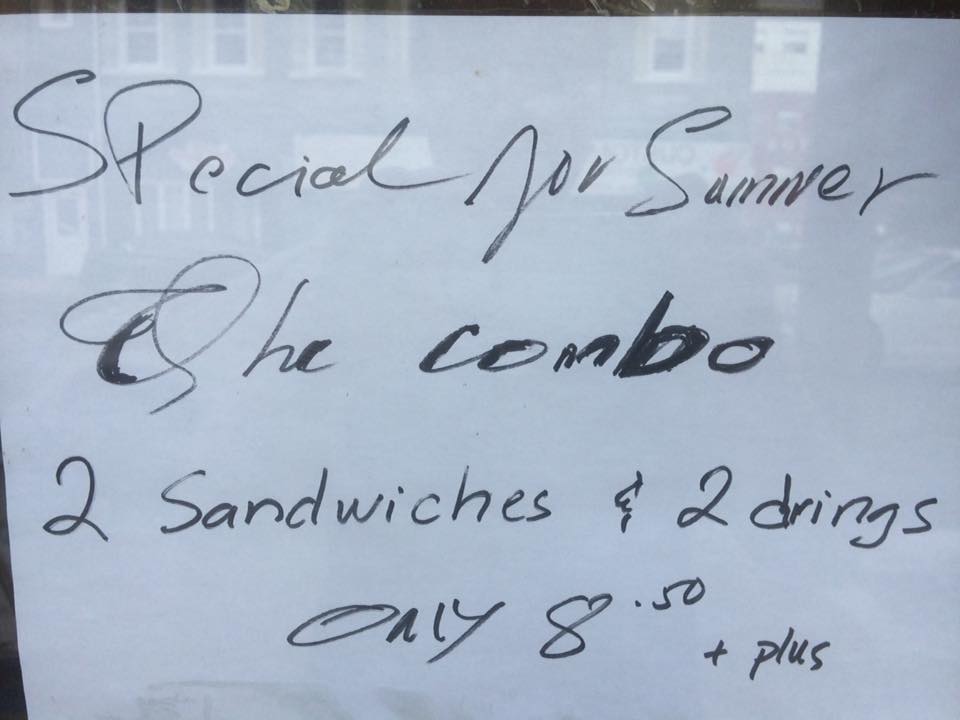 SPecial for Summer
The combo
2 Sandwiches & 2 drings
only 8.50
+ plus